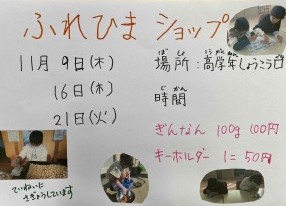 ふれひま ショップ
11月 9日(木)
16日(木)
21日(火)
ばしょ
場所:高学年しょうこう口
じかん
時間
ぎんなん 100g 100円
キーホルダー 1こ 50円
ていねいに
さぎょうしています